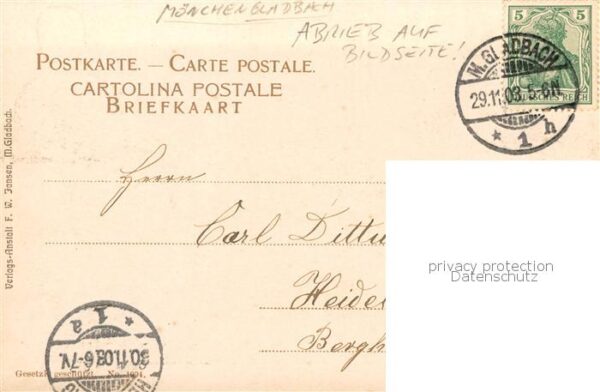 MÖNCHENGLADBACH
ABRIEB AUF
BILDSEITE!
5 5
M. GLADBACH
29.11.03. 5-6N
* 1 h
POSTKARTE. — CARTE POSTALE.
CARTOLINA POSTALE
BRIEFKAART
Verlags-Anstalt F. W. Jansen, M.Gladbach.
Herrn
Carl Dittu
Heide
Bergh
privacy protection
Datenschutz
* 1 a
30.11.03. 6-7N.
Gesetzl. geschützt. No. 1694.